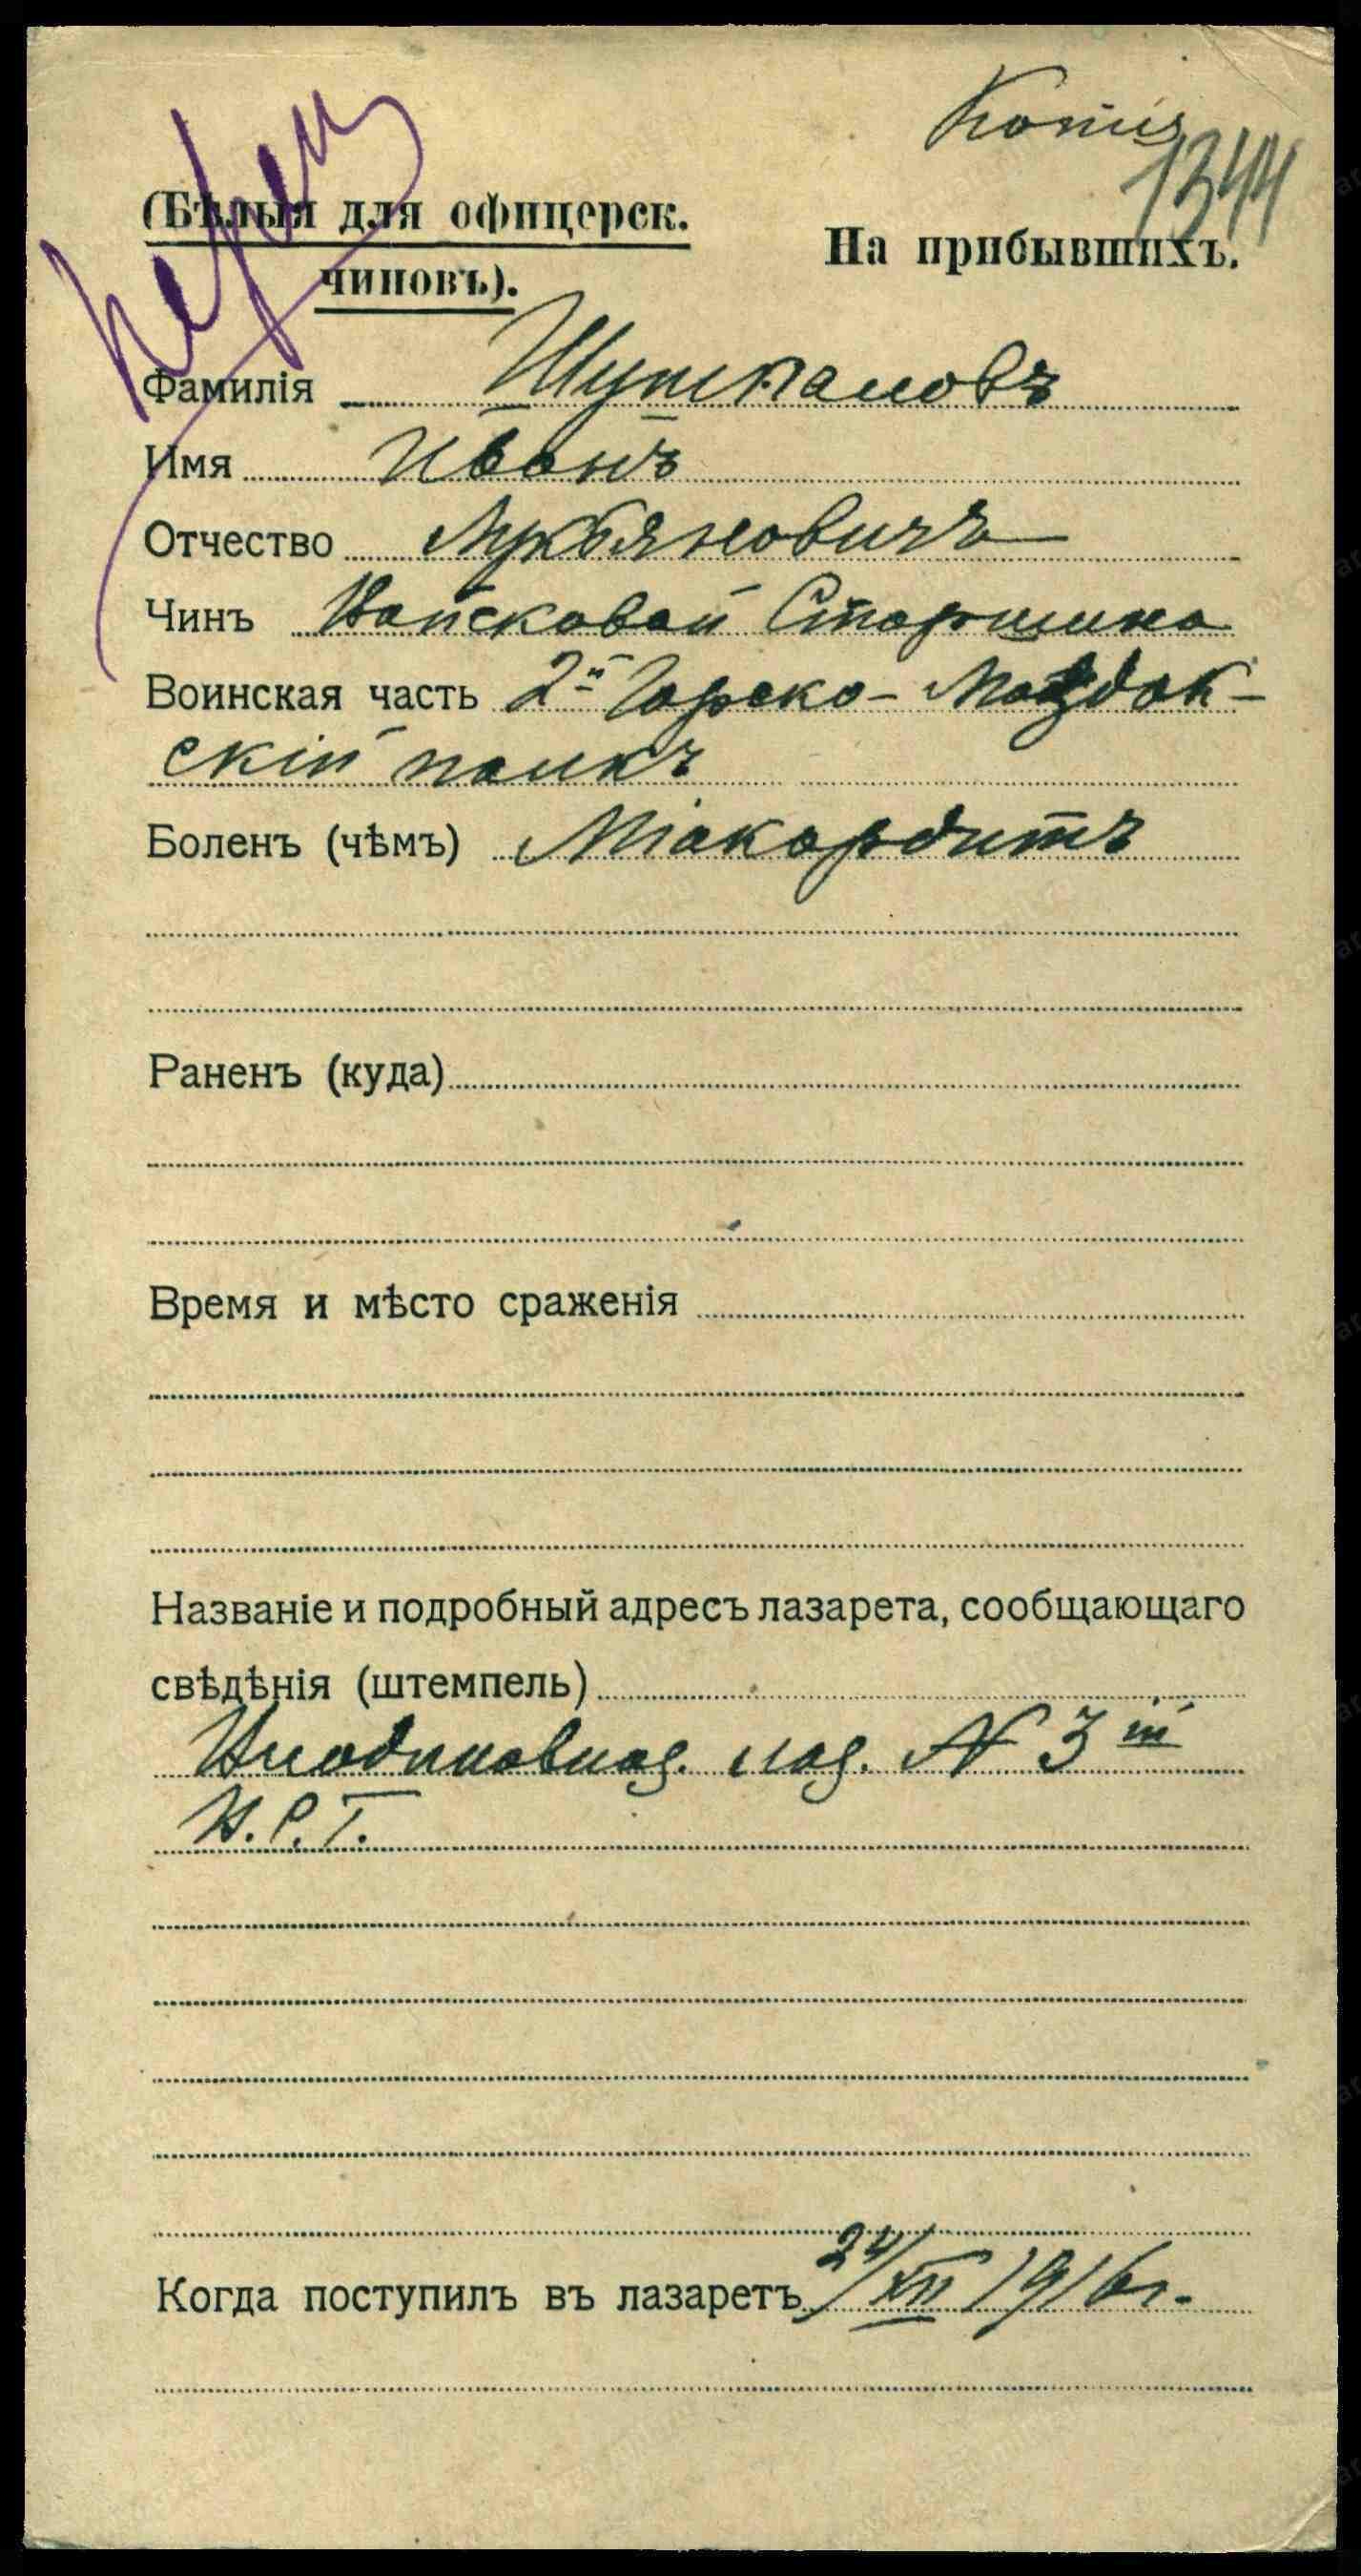 Копія
1344
(Бѣлыя для офицерск.
чиновъ).
На прибывшихъ.
Фамилія Шуткамовъ
Имя Иванъ
Отчество Лукьяновичъ
Чинъ Войсковой Старшина
Воинская часть 2й Горско-Моздок-
скій полкъ
Боленъ (чѣмъ) Міакордитъ
Раненъ (куда)
Время и мѣсто сраженія
Названіе и подробный адресъ лазарета, сообщающаго
свѣдѣнія (штемпель)
лаз. № 3й
Когда поступилъ въ лазаретъ 24/XII 1916 г.